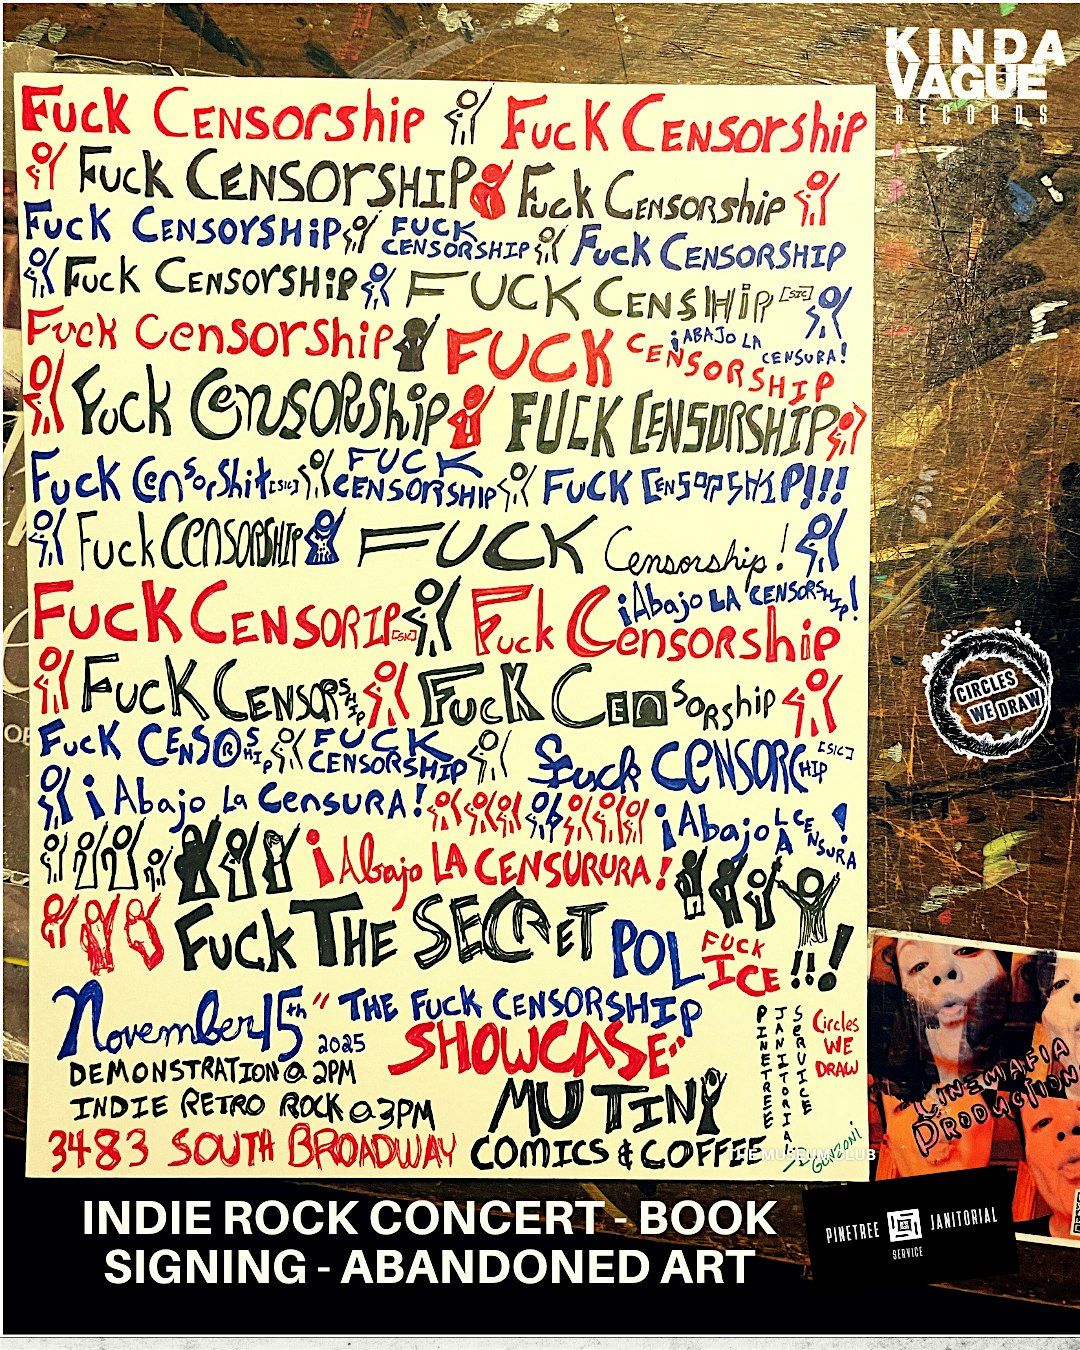 KINDA
VAGUE
RECORDS
Fuck Censorship Fuck Censorship
Fuck CENSOrSHIP Fuck Censorship
Fuck CENSOrSHiP FUCK CENSORSHIP Fuck CENSORSHIP
Fuck CENSOrSHiP FUCK CENSHip [SIC]
Fuck Censorship FUCK CENSORSHIP ¡ABAJO LA CENSURA!
Fuck Censorship FUCK CENSORSHIP
Fuck CensorShit [SIC] FUCK CENSORSHIP FUCK CENSORSHIP!!!
Fuck CENSORSHIP FUCK Censorship!
FUCK CENSORIP [SIC] Fuck Censorship ¡Abajo LA CENSORSHIP!
FUCK CENSORSHIP Fuck CENSORship
Fuck CENS®SHIP FUCK CENSORSHIP Fuck CENSORCHIP [SIC]
¡Abajo La CensurA! ¡Abajo LA CENSURA!
¡Abajo LA CENSURURA!
Fuck THE SECRET POLICE !!!
FUCK ICE
November 15th 2025 "THE FUCK CENSORSHIP
SHOWCASE"
DEMONSTRATION @ 2PM
INDIE RETRO ROCK @ 3PM
MUTINY
3483 SOUTH BROADWAY COMICS & COFFEE
PINETREE
JANITORIAL
SERVICE
Circles
WE
DRAW
THE MUSEUM CLUB
CIRCLES
WE DRAW
CINEMAFIA
PRODUCTION
INDIE ROCK CONCERT - BOOK
SIGNING - ABANDONED ART
PINETREE JANITORIAL
SERVICE